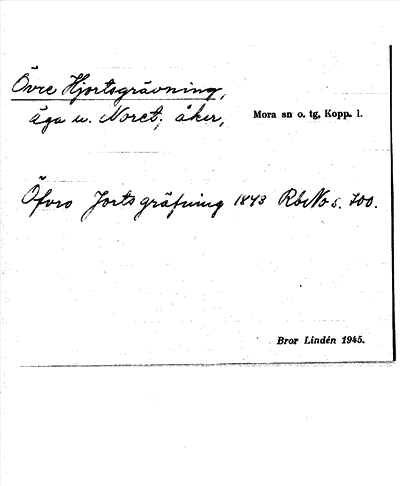 Övre Hjortsgrävning,
äga u. Noret; åker,
Mora sn o. tg, Kopp. l.
Öfvro Jorts gräfning 1843 RbNo s. 700.
Bror Lindén 1945.